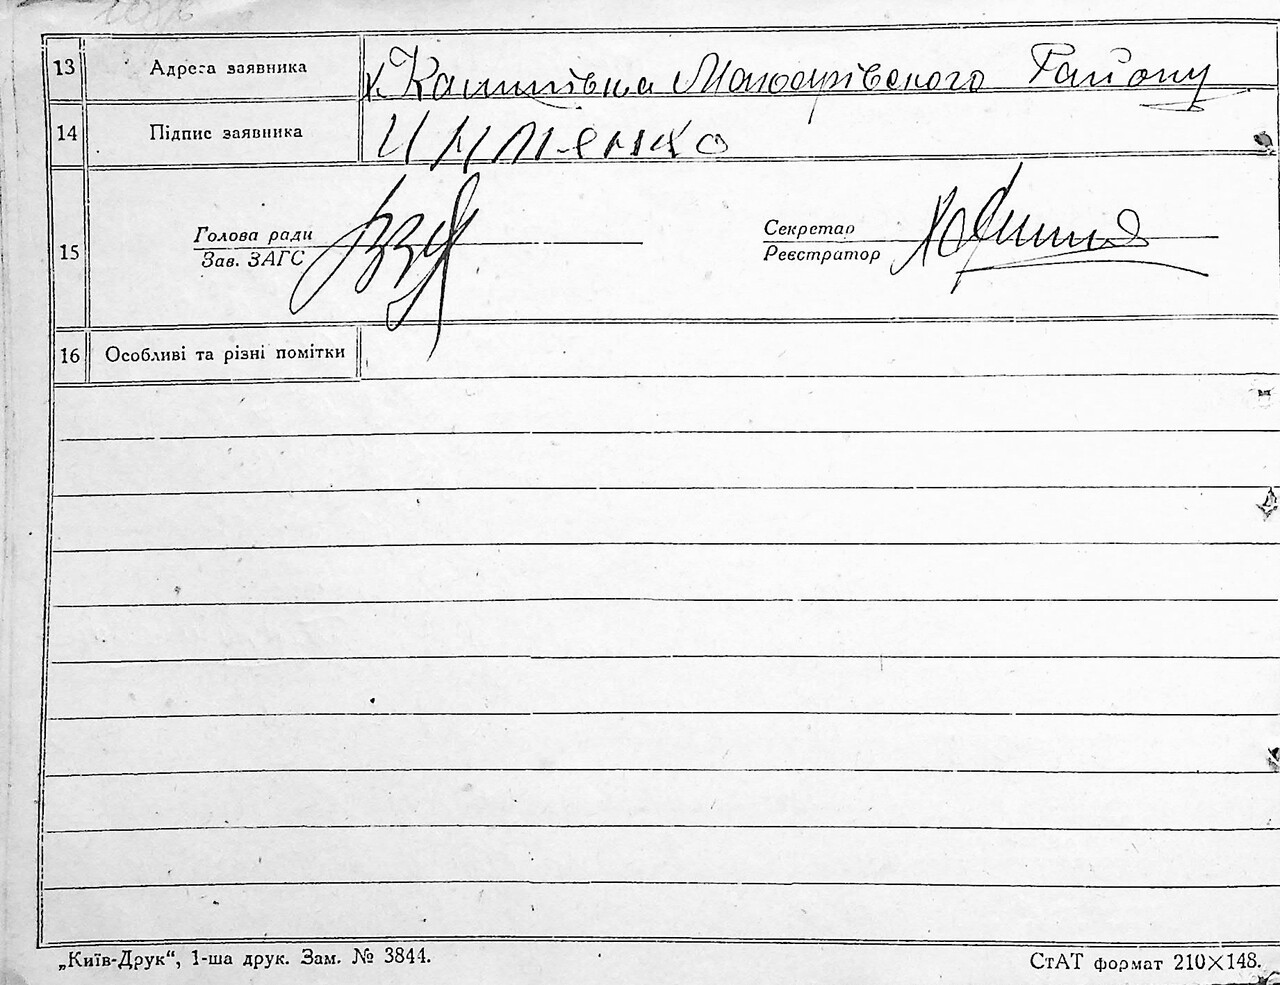 13 Адреса заявника х. Камшівка Макарівского Району
14 Підпис заявника
15 Голова ради Секретар
Зав. ЗАГС Реєстратор
16 Особливі та різні помітки
„Київ-Друк“, 1-ша друк. Зам. № 3844. СтАТ формат 210×148.